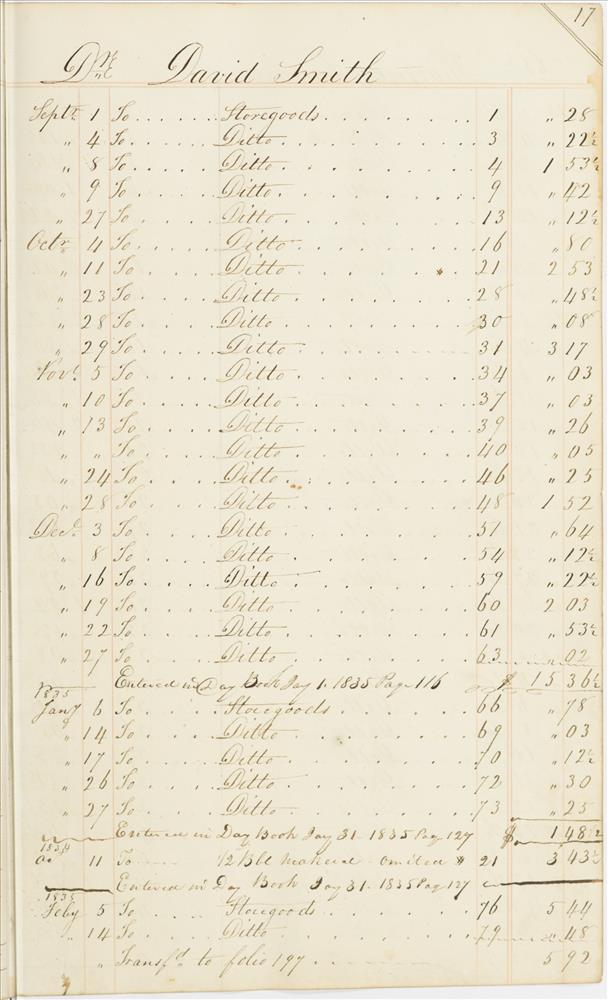 17
Dr David Smith
Septr 1 To Storegoods 1 " 28
" 4 To Ditto 3 " 22½
" 8 To Ditto 4 1 53½
" 9 To Ditto 9 " 42
" 27 To Ditto 13 " 12½
Octr 4 To Ditto 16 " 80
" 11 To Ditto 21 2 53
" 23 To Ditto 28 " 48½
" 28 To Ditto 30 " 08
" 29 To Ditto 31 3 17
Novr 5 To Ditto 34 " 03
" 10 To Ditto 37 " 03
" 13 To Ditto 39 " 26
" " To Ditto 40 " 05
" 24 To Ditto 46 " 25
" 28 To Ditto 48 1 52
Decr 3 To Ditto 51 " 64
" 8 To Ditto 54 " 12½
" 16 To Ditto 59 " 22½
" 19 To Ditto 60 2 03
" 22 To Ditto 61 " 53½
" 27 To Ditto 63 " 02
Entered in Day Book Jay 1. 1835 Page 116 $ 15 36½
1835
Jany 6 To Storegoods 66 " 78
" 14 To Ditto 69 " 03
" 17 To Ditto 70 " 12½
" 26 To Ditto 72 " 30
" 27 To Ditto 73 " 25
Entered in Day Book Jay 31. 1835 Page 127 $ 1 48½
1834
11 To ½ Bbl Makerel omited 21 3 43½
Entered in Day Book Jay 31. 1835 Page 127
1835
Feby 5 To Storegoods 76 5 44
" 14 To Ditto 79 " 48
" Transfd to folio 197 5 92